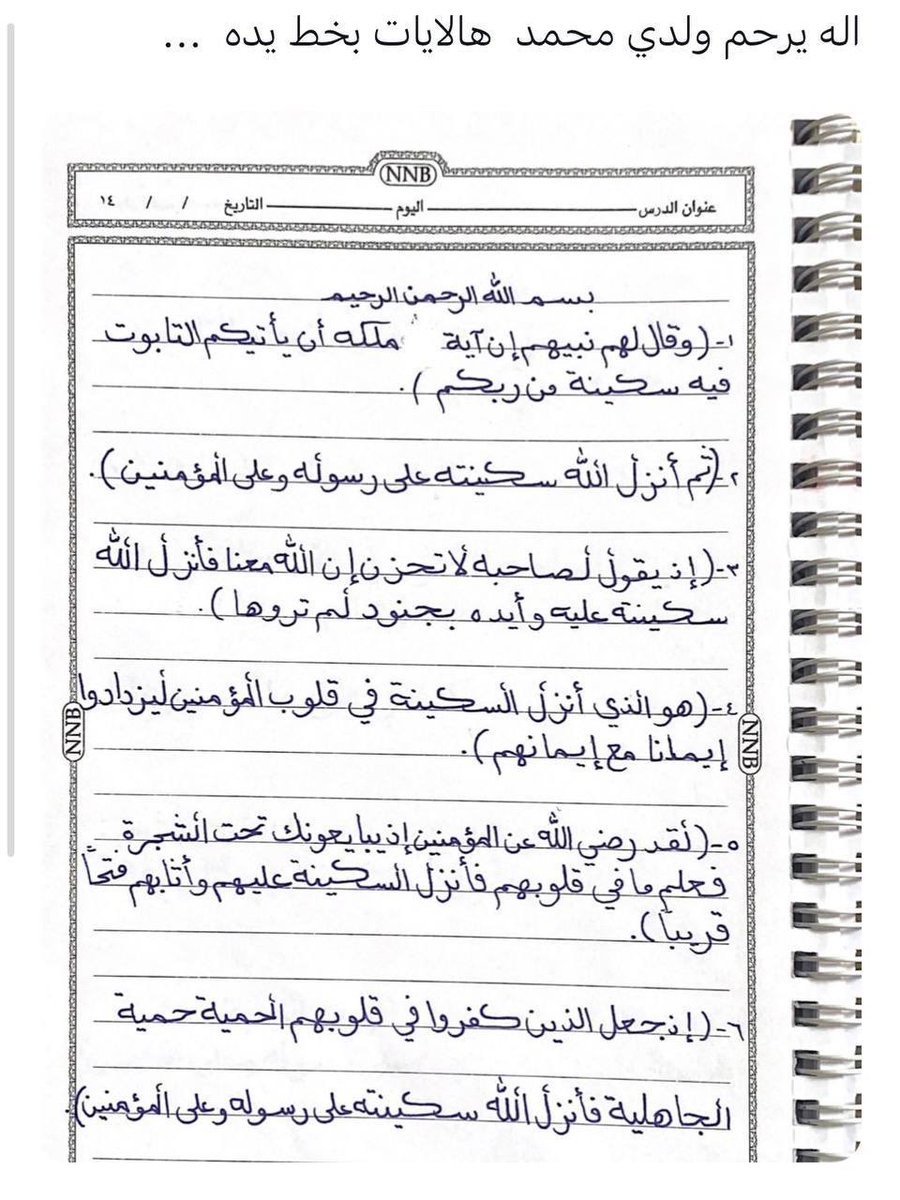 اله يرحم ولدي محمد هالايات بخط يده ...
NNB
عنوان الدرس اليوم التاريخ / / ١٤
بسم الله الرحمن الرحيم
١-(وقال لهم نبيهم إن آية ملكه أن يأتيكم التابوت
فيه سكينة من ربكم).
٢-(ثم أنزل الله سكينته على رسوله وعلى المؤمنين).
٣-(إذ يقول لصاحبه لا تحزن إن الله معنا فأنزل الله
سكينته عليه وأيده بجنود لم تروها).
٤-(هو الذي أنزل السكينة في قلوب المؤمنين ليزدادوا
إيمانا مع إيمانهم).
NNB
NNB
٥-(لقد رضي الله عن المؤمنين إذ يبايعونك تحت الشجرة
فعلم ما في قلوبهم فأنزل السكينة عليهم وأثابهم فتحاً
قريباً).
٦-(إذ جعل الذين كفروا في قلوبهم الحمية حمية
الجاهلية فأنزل الله سكينته على رسوله وعلى المؤمنين).